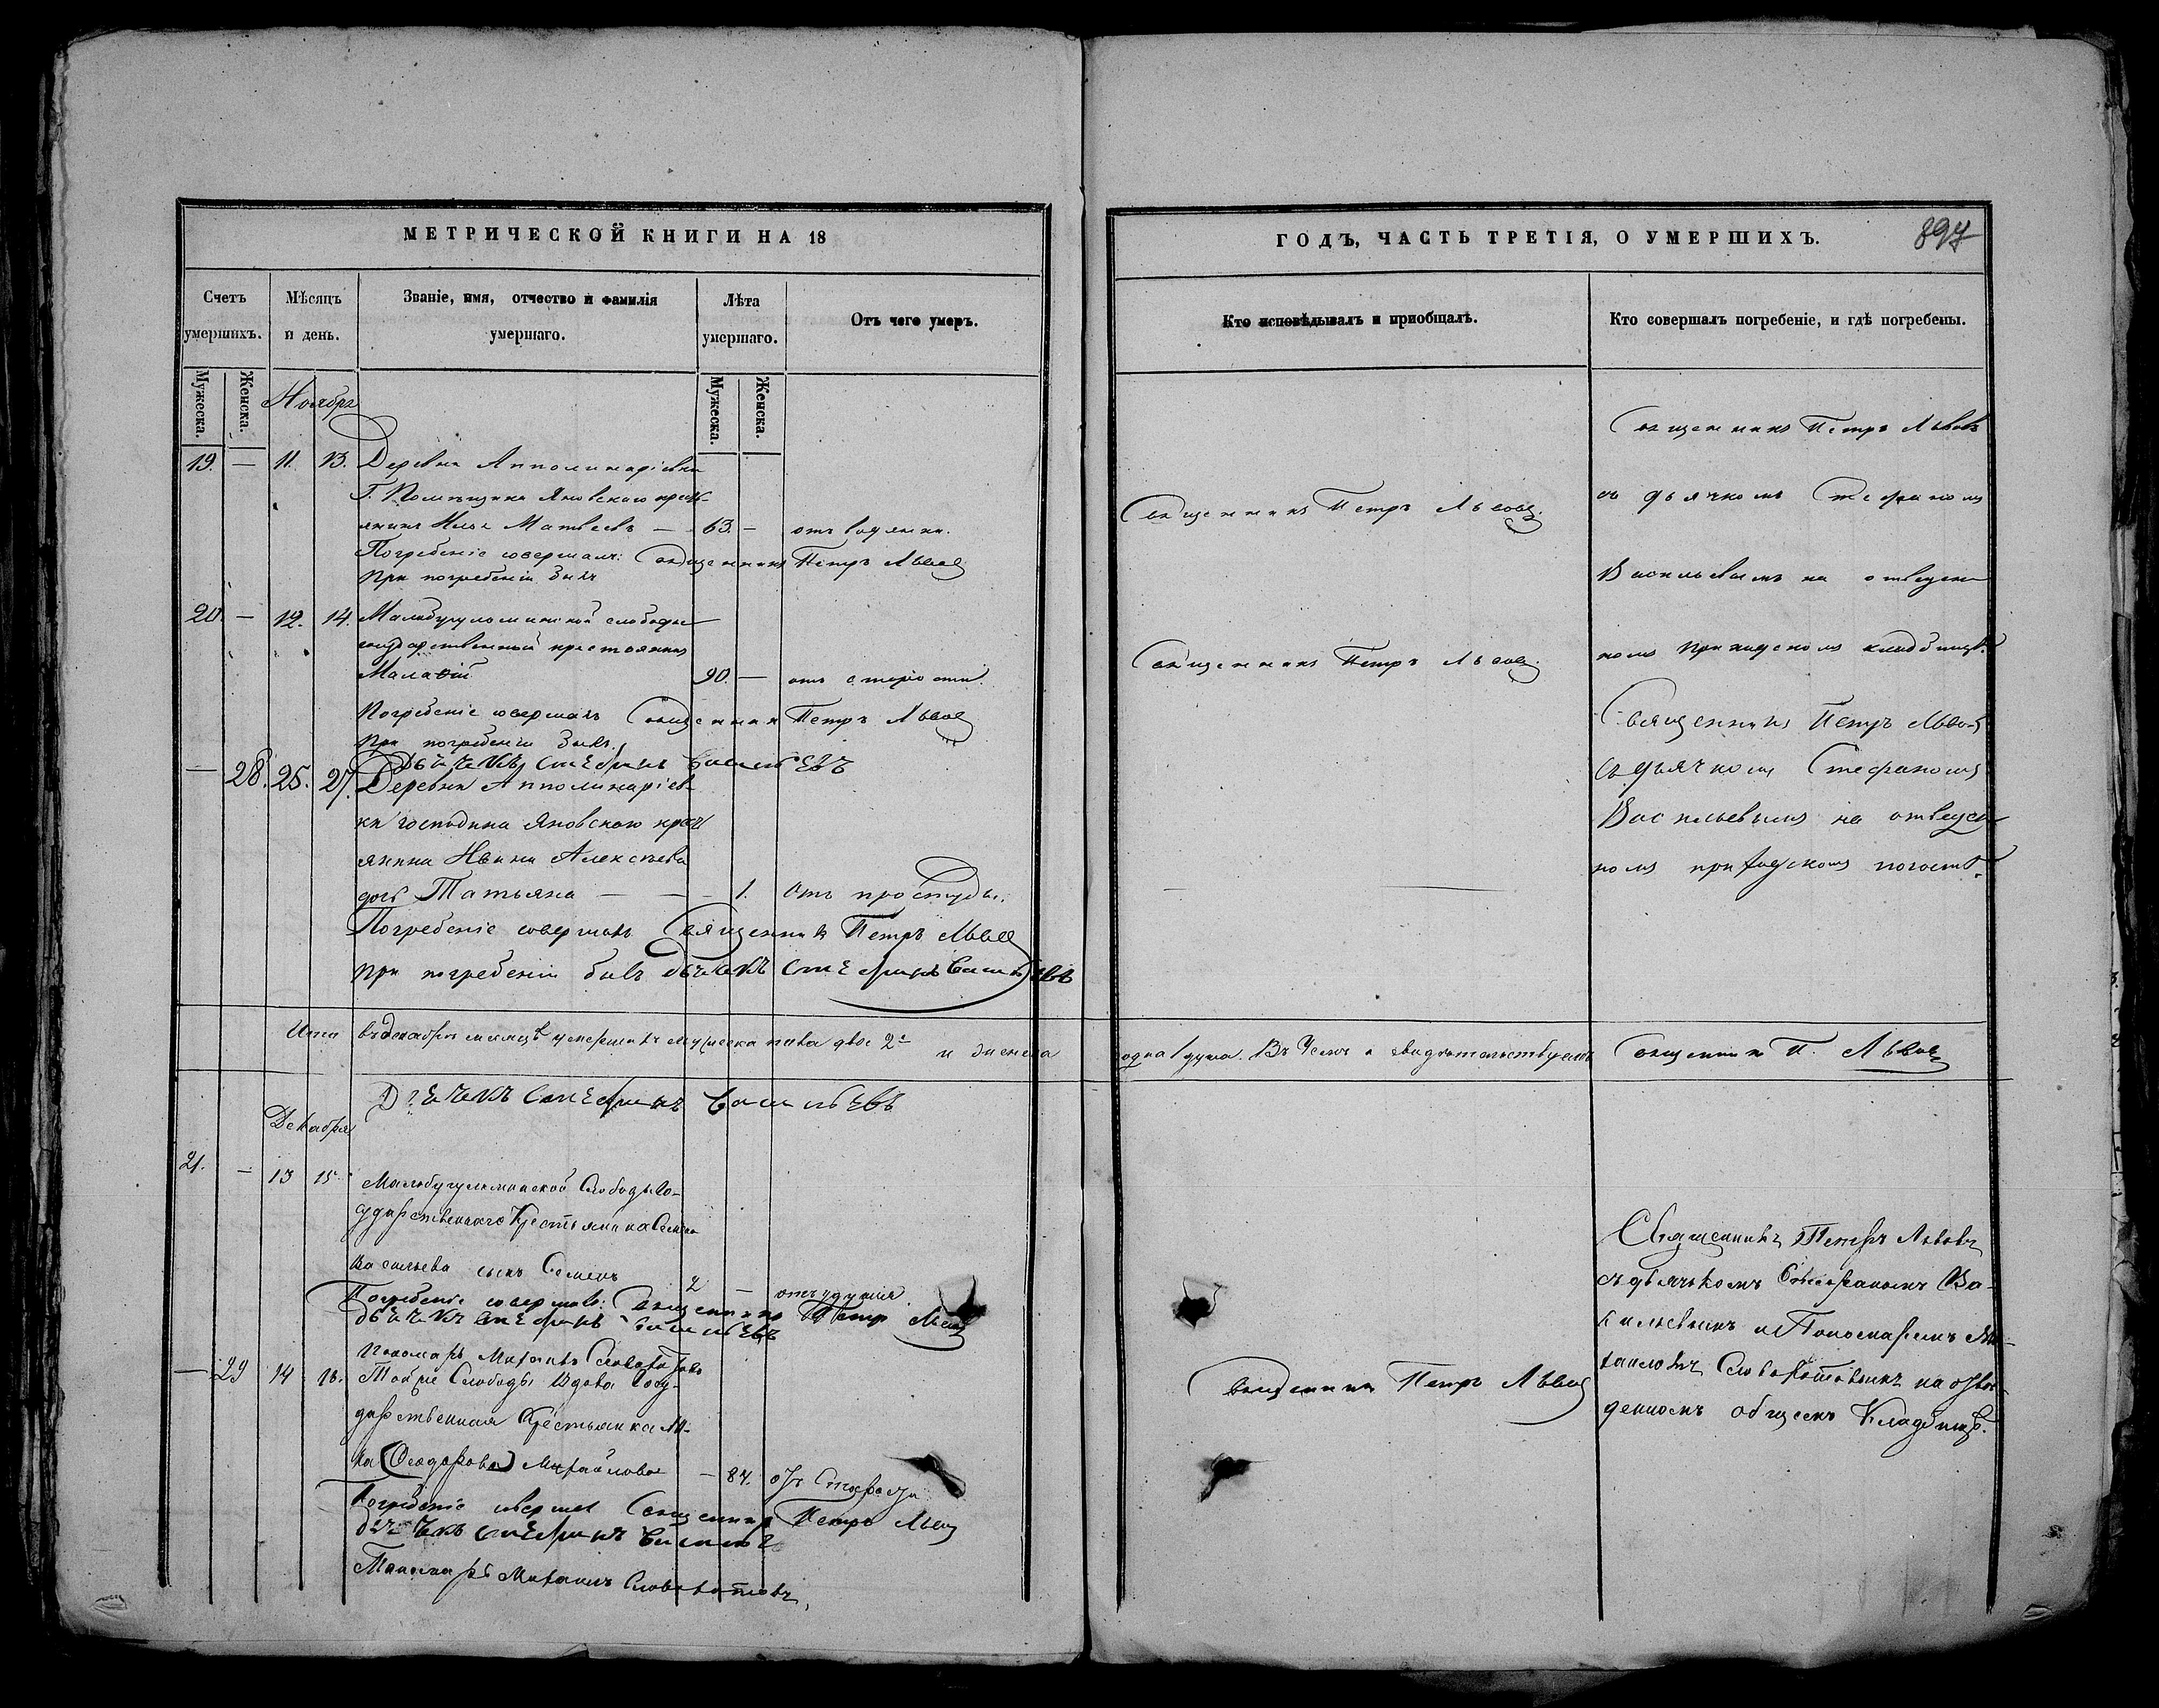 МЕТРИЧЕСКОЙ КНИГИ НА 18
Счетъ умершихъ.
Мужеска.
Женска.
Мѣсяцъ и день.
Званіе, имя, отчество и фамилія умершаго.
Лѣта умершаго.
Мужеска.
Женска.
Отъ чего умеръ.
Ноябрь
19. — 11. 13. Деревни Апполинаріевки
Г. Помѣщика Яновскаго крест-
янинъ Илья Матвеевъ — 63. — отъ водянки.
Погребеніе совершалъ: Священникъ Петръ Львовъ
При погребеніи былъ
20. — 12. 14. Малобугульминской слободы
государственный крестьянинъ
Малафій 90. — отъ старости.
Погребеніе совершалъ Священникъ Петръ Львовъ
При погребеніи былъ
Дьячекъ Стефанъ Васильевъ
— 28. 25. 27. Деревни Апполинаріев-
ки господина Яновскаго крест
янина Ивана Алексѣева
дочь Татьяна — — 1. Отъ простуды.
Погребеніе совершалъ Священникъ Петръ Львовъ
При погребеніи былъ дьячекъ Стефанъ Васильевъ
Итого въ декабрѣ мѣсяцѣ умершихъ мужеска пола двое 2е и женска
Дьячекъ Стефанъ Васильевъ
Декабря
21. — 13 15 Малобугульминской Слободы Го-
сударственнаго Крестьянина
Васильева сынъ Семенъ 2 — отъ удушія
Погребеніе совершалъ: Священникъ Петръ Львовъ
дьячекъ Стефанъ Васильевъ
Пономарь Михаилъ Словохотовъ
— 29 14 16. Той же Слободы Вдова Госу-
дарственная Крестьянка
(Феодорова) Михайлова — 84. отъ Старости
Погребеніе совершалъ Священникъ Петръ Львовъ
дьячекъ Стефанъ
Пономарь Михаилъ Словохотовъ,
ГОДЪ, ЧАСТЬ ТРЕТІЯ, О УМЕРШИХЪ.
897
Кто исповѣдывалъ и пріобщалъ.
Кто совершалъ погребеніе, и гдѣ погребены.
Священникъ Петръ Львовъ.
Священникъ Петръ Львовъ.
Священникъ Петръ Львовъ
съ дьячкомъ Стефаномъ
Васильевымъ на отведен
номъ приходскомъ кладбищѣ.
Священникъ Петръ Львовъ
съ дьячкомъ Стефаномъ
Васильевымъ на отведен
номъ приходскомъ погостѣ.
одна 1 душа. Въ чемъ и свидѣтельствуемъ Священникъ П. Львовъ
Священникъ Петръ Львовъ
Священникъ Петръ Львовъ
съ дьячькомъ Стефаномъ Ва-
сильевымъ и Пономаремъ Ми-
хаиломъ Словохотовымъ на отве-
денномъ общемъ Кладбищѣ.